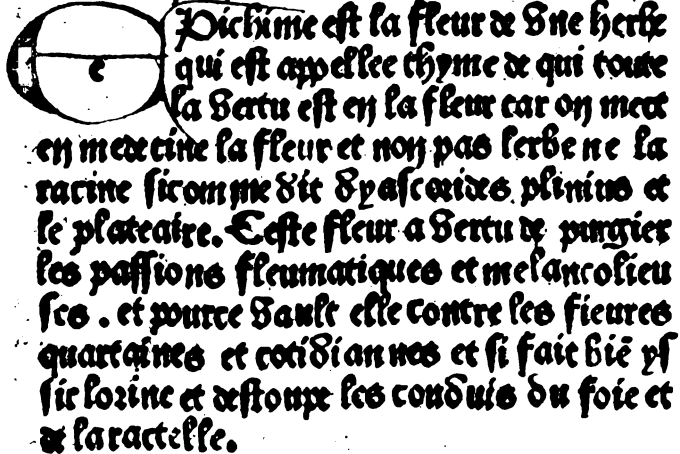 Epichime est la fleur de vne herbe
qui est appellee thyme de qui toute
la vertu est en la fleur car on mect
en medecine la fleur et non pas lerbe ne la
racine sicomme dit dyascorides plinius et
le plateaire. Ceste fleur a vertu de purgier
les passions fleumatiques et melancolieu
ses . et pource vault elle contre les fieures
quartaines et cotidiannes et si fait biē ys
sir lorine et destoupe les conduis du foie et
de la ractelle.